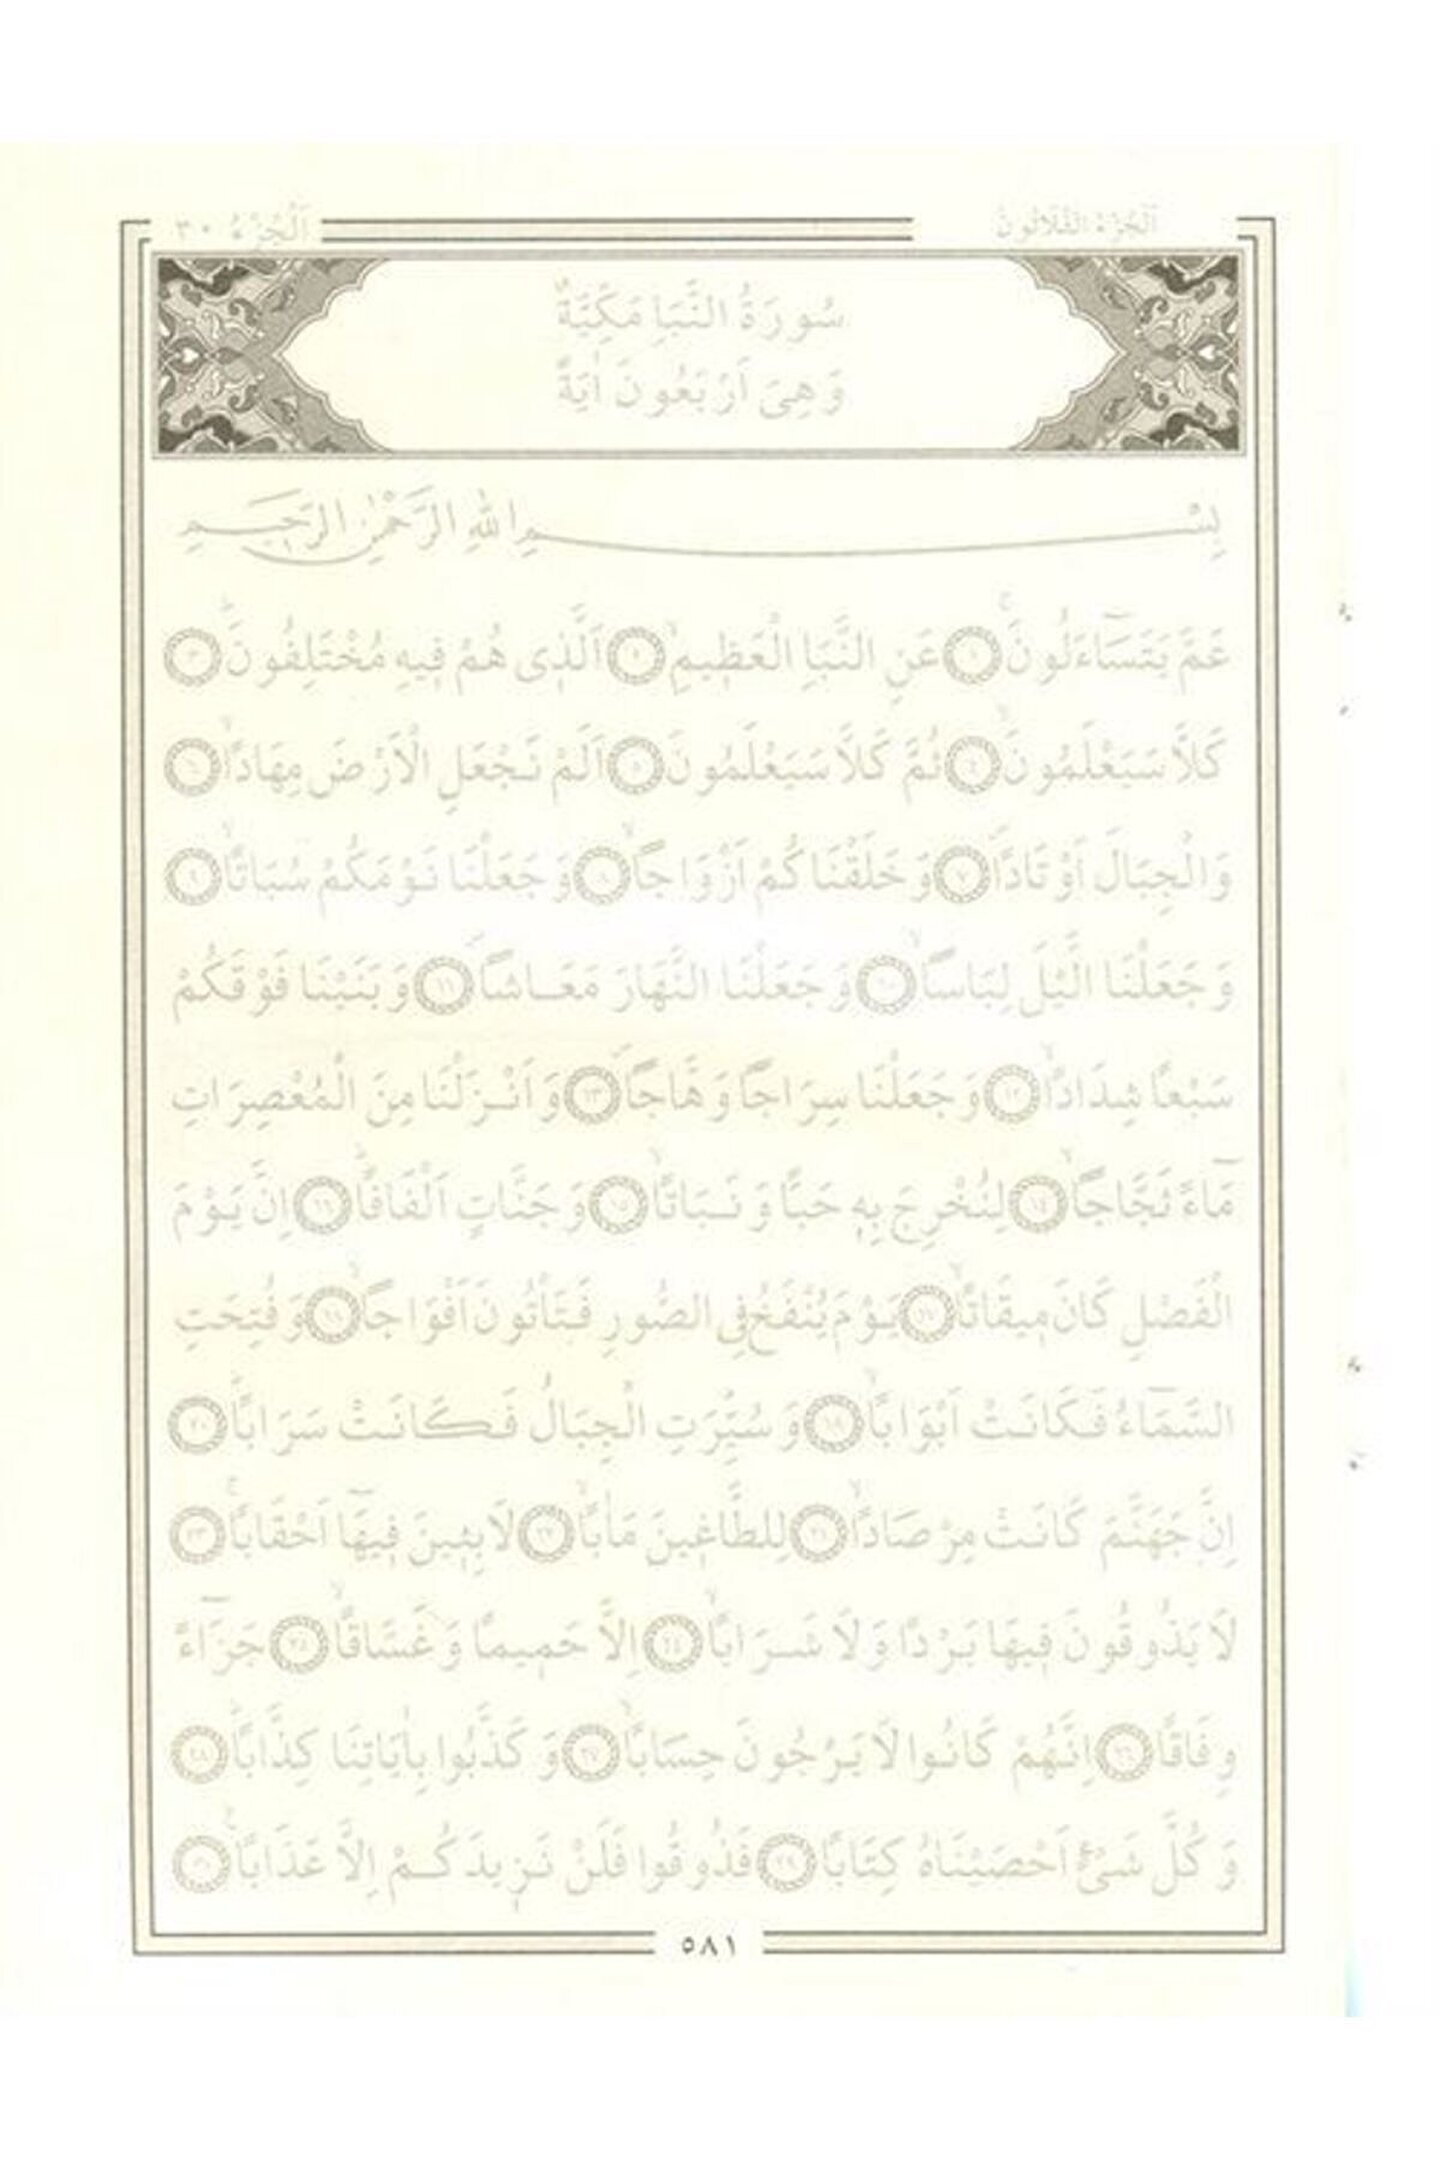 اَلْجُزْءُ الثَّلَاثُونَ
اَلْجُزْءُ ٣٠
سُورَةُ النَّبَاِ مَكِّيَّةٌ
وَهِىَ اَرْبَعُونَ اٰيَةً
بِسْمِ اللّٰهِ الرَّحْمٰنِ الرَّحِيمِ
عَمَّ يَتَسَٓاءَلُونَۚ ﴿١﴾ عَنِ النَّبَاِ الْعَظِيمِۙ ﴿٢﴾ اَلَّذِى هُمْ فِيهِ مُخْتَلِفُونَۜ ﴿٣﴾
كَلَّا سَيَعْلَمُونَۙ ﴿٤﴾ ثُمَّ كَلَّا سَيَعْلَمُونَ ﴿٥﴾ اَلَمْ نَجْعَلِ الْاَرْضَ مِهَادًاۙ ﴿٦﴾
وَالْجِبَالَ اَوْتَادًاۙ ﴿٧﴾ وَخَلَقْنَاكُمْ اَزْوَاجًاۙ ﴿٨﴾ وَجَعَلْنَا نَوْمَكُمْ سُبَاتًاۙ ﴿٩﴾
وَجَعَلْنَا الَّيْلَ لِبَاسًاۙ ﴿١٠﴾ وَجَعَلْنَا النَّهَارَ مَعَاشًاۖ ﴿١١﴾ وَبَنَيْنَا فَوْقَكُمْ
سَبْعًا شِدَادًاۙ ﴿١٢﴾ وَجَعَلْنَا سِرَاجًا وَهَّاجًاۖ ﴿١٣﴾ وَاَنْزَلْنَا مِنَ الْمُعْصِرَاتِ
مَٓاءً ثَجَّاجًاۙ ﴿١٤﴾ لِنُخْرِجَ بِهِ حَبًّا وَنَبَاتًاۙ ﴿١٥﴾ وَجَنَّاتٍ اَلْفَافًاۜ ﴿١٦﴾ اِنَّ يَوْمَ
الْفَصْلِ كَانَ مِيقَاتًاۙ ﴿١٧﴾ يَوْمَ يُنْفَخُ فِى الصُّورِ فَتَأْتُونَ اَفْوَاجًاۙ ﴿١٨﴾ وَفُتِحَتِ
السَّمَٓاءُ فَكَانَتْ اَبْوَابًاۙ ﴿١٩﴾ وَسُيِّرَتِ الْجِبَالُ فَكَانَتْ سَرَابًاۜ ﴿٢٠﴾
اِنَّ جَهَنَّمَ كَانَتْ مِرْصَادًاۙ ﴿٢١﴾ لِلطَّاغِينَ مَاٰبًاۙ ﴿٢٢﴾ لَابِثِينَ فِيهَٓا اَحْقَابًاۚ ﴿٢٣﴾
لَا يَذُوقُونَ فِيهَا بَرْدًا وَلَا شَرَابًاۙ ﴿٢٤﴾ اِلَّا حَمِيمًا وَغَسَّاقًاۙ ﴿٢٥﴾ جَزَٓاءً
وِفَاقًاۜ ﴿٢٦﴾ اِنَّهُمْ كَانُوا لَا يَرْجُونَ حِسَابًاۙ ﴿٢٧﴾ وَكَذَّبُوا بِاٰيَاتِنَا كِذَّابًاۜ ﴿٢٨﴾
وَكُلَّ شَىْءٍ اَحْصَيْنَاهُ كِتَابًاۙ ﴿٢٩﴾ فَذُوقُوا فَلَنْ نَزِيدَكُمْ اِلَّا عَذَابًا۟ ﴿٣٠﴾
٥٨١